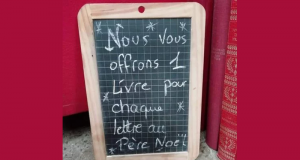 Nous vous
offrons 1
Livre pour
chaque
lettre au
Père Noël